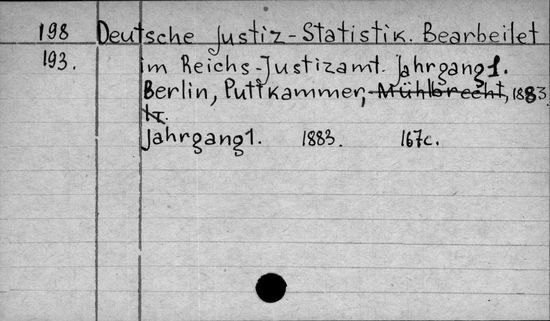 198 Deutsche Justiz-Statistik. Bearbeitet
193. im Reichs-Justizamt. Jahrgang 1.
Berlin, Puttkammer, Mühlbrecht, 1883
Jahrgang 1. 1883. 167c.